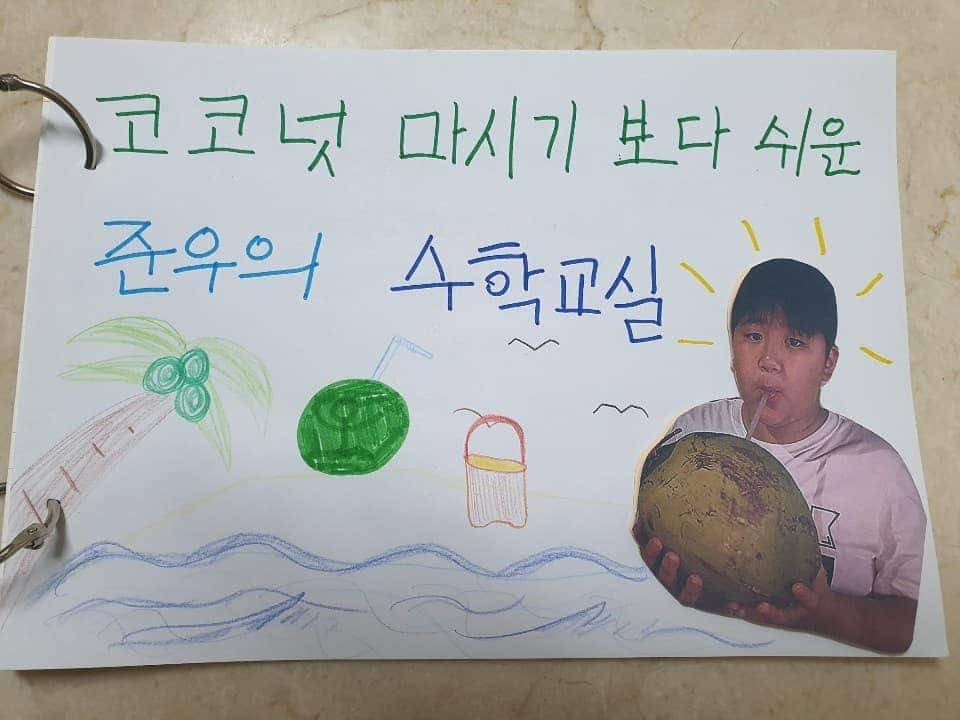 코코넛 마시기 보다 쉬운
준우의 수학교실